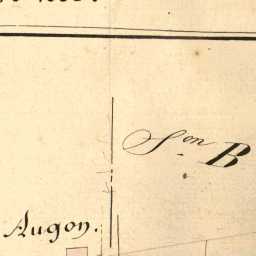 Son B
Augon.